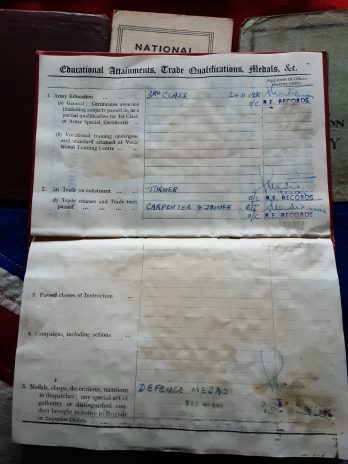 NATIONAL
Educational Attainments, Trade Qualifications, Medals, &c.
Signature of Officer
making entry
1. Army Education
(a) General: Certificates awarded
(including subjects passed in, as a
partial qualification for 1st Class,
or Army Special, Certificate)
3RD CLASS
O/C R.E. RECORDS
(b) Vocational training undergone
and standard attained at Vocational
Training Centre
2. (a) Trade on enlistment
TURNER
O/C R.E. RECORDS
(b) Trade courses and Trade tests
passed
CARPENTER & JOINER
O/C R.E. RECORDS
3. Passed classes of Instruction
4. Campaigns, including actions
5. Medals, clasps, decorations, mentions
in despatches; any special act of
gallantry or distinguished conduct
brought to notice in Brigade
or Superior Orders
DEFENCE MEDAL
WAR MEDAL